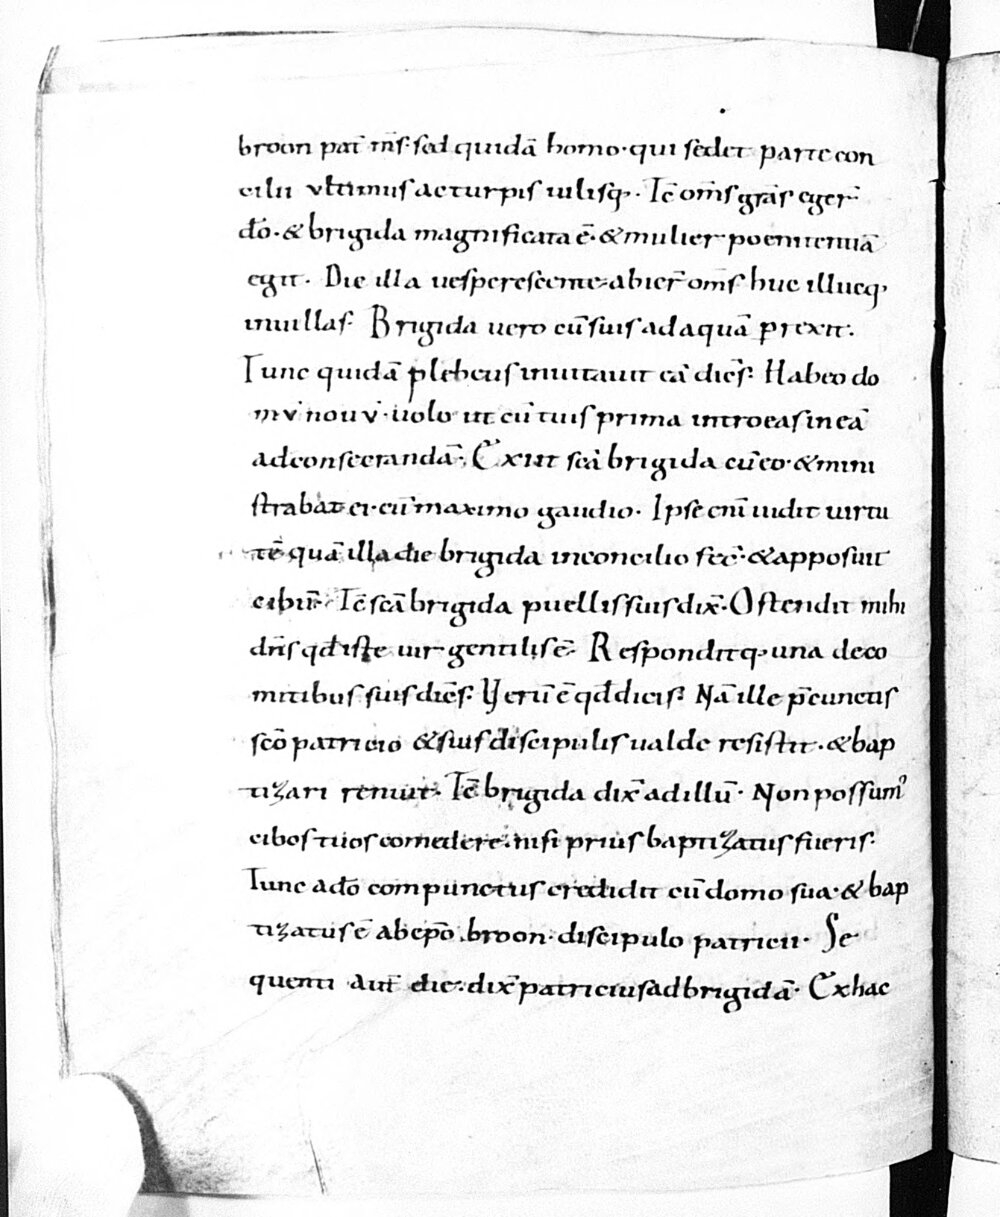 broon pat̄ m̄s· sed quidā homo· qui sedet parte con
cilii vltimus ac turpis uilisq;· Tc̄ om̄s grās eger̄
dō· & brigida magnificata ē· & mulier poenitentiā
egit· Die illa uesperescente· abier̄ om̄s huc illucq;
inuillas· Brigida uero cū suis ad aquā prexit·
Tunc quidā plebeus inuitauit eā dicēs· Habeo do
mv̄ nouv̄· uolo ut cū tuis prima introeas in eā
adconsecrandā· Exiit scā brigida cū eo· & mini
strabat ei cū maximo gaudio· Ipse enī uidit uirtu
tē quā illa die brigida inconcilio fec̄· & apposuit
cibū· Tc̄ scā brigida puellis suis dix̄· Ostendit mihi
dn̄s qđ iste uir gentilis ē· Responditq; una de co
mitibus suis dicēs· Verū ē qđ dicis· Nā ille p̄cunctis
scō patricio & suis discipulis ualde resistit· & bap
tizari renuit· Tc̄ brigida dix̄ ad illū· Non possum'
cibos tuos comedere· nisi prius baptizatus fueris·
Tunc a dō compunctus credidit cū domo sua· & bap
tizatus ē ab ep̄o broon· discipulo patricii· Se
quenti aut̄ die· dix̄ patricius ad brigidā· Ex hac